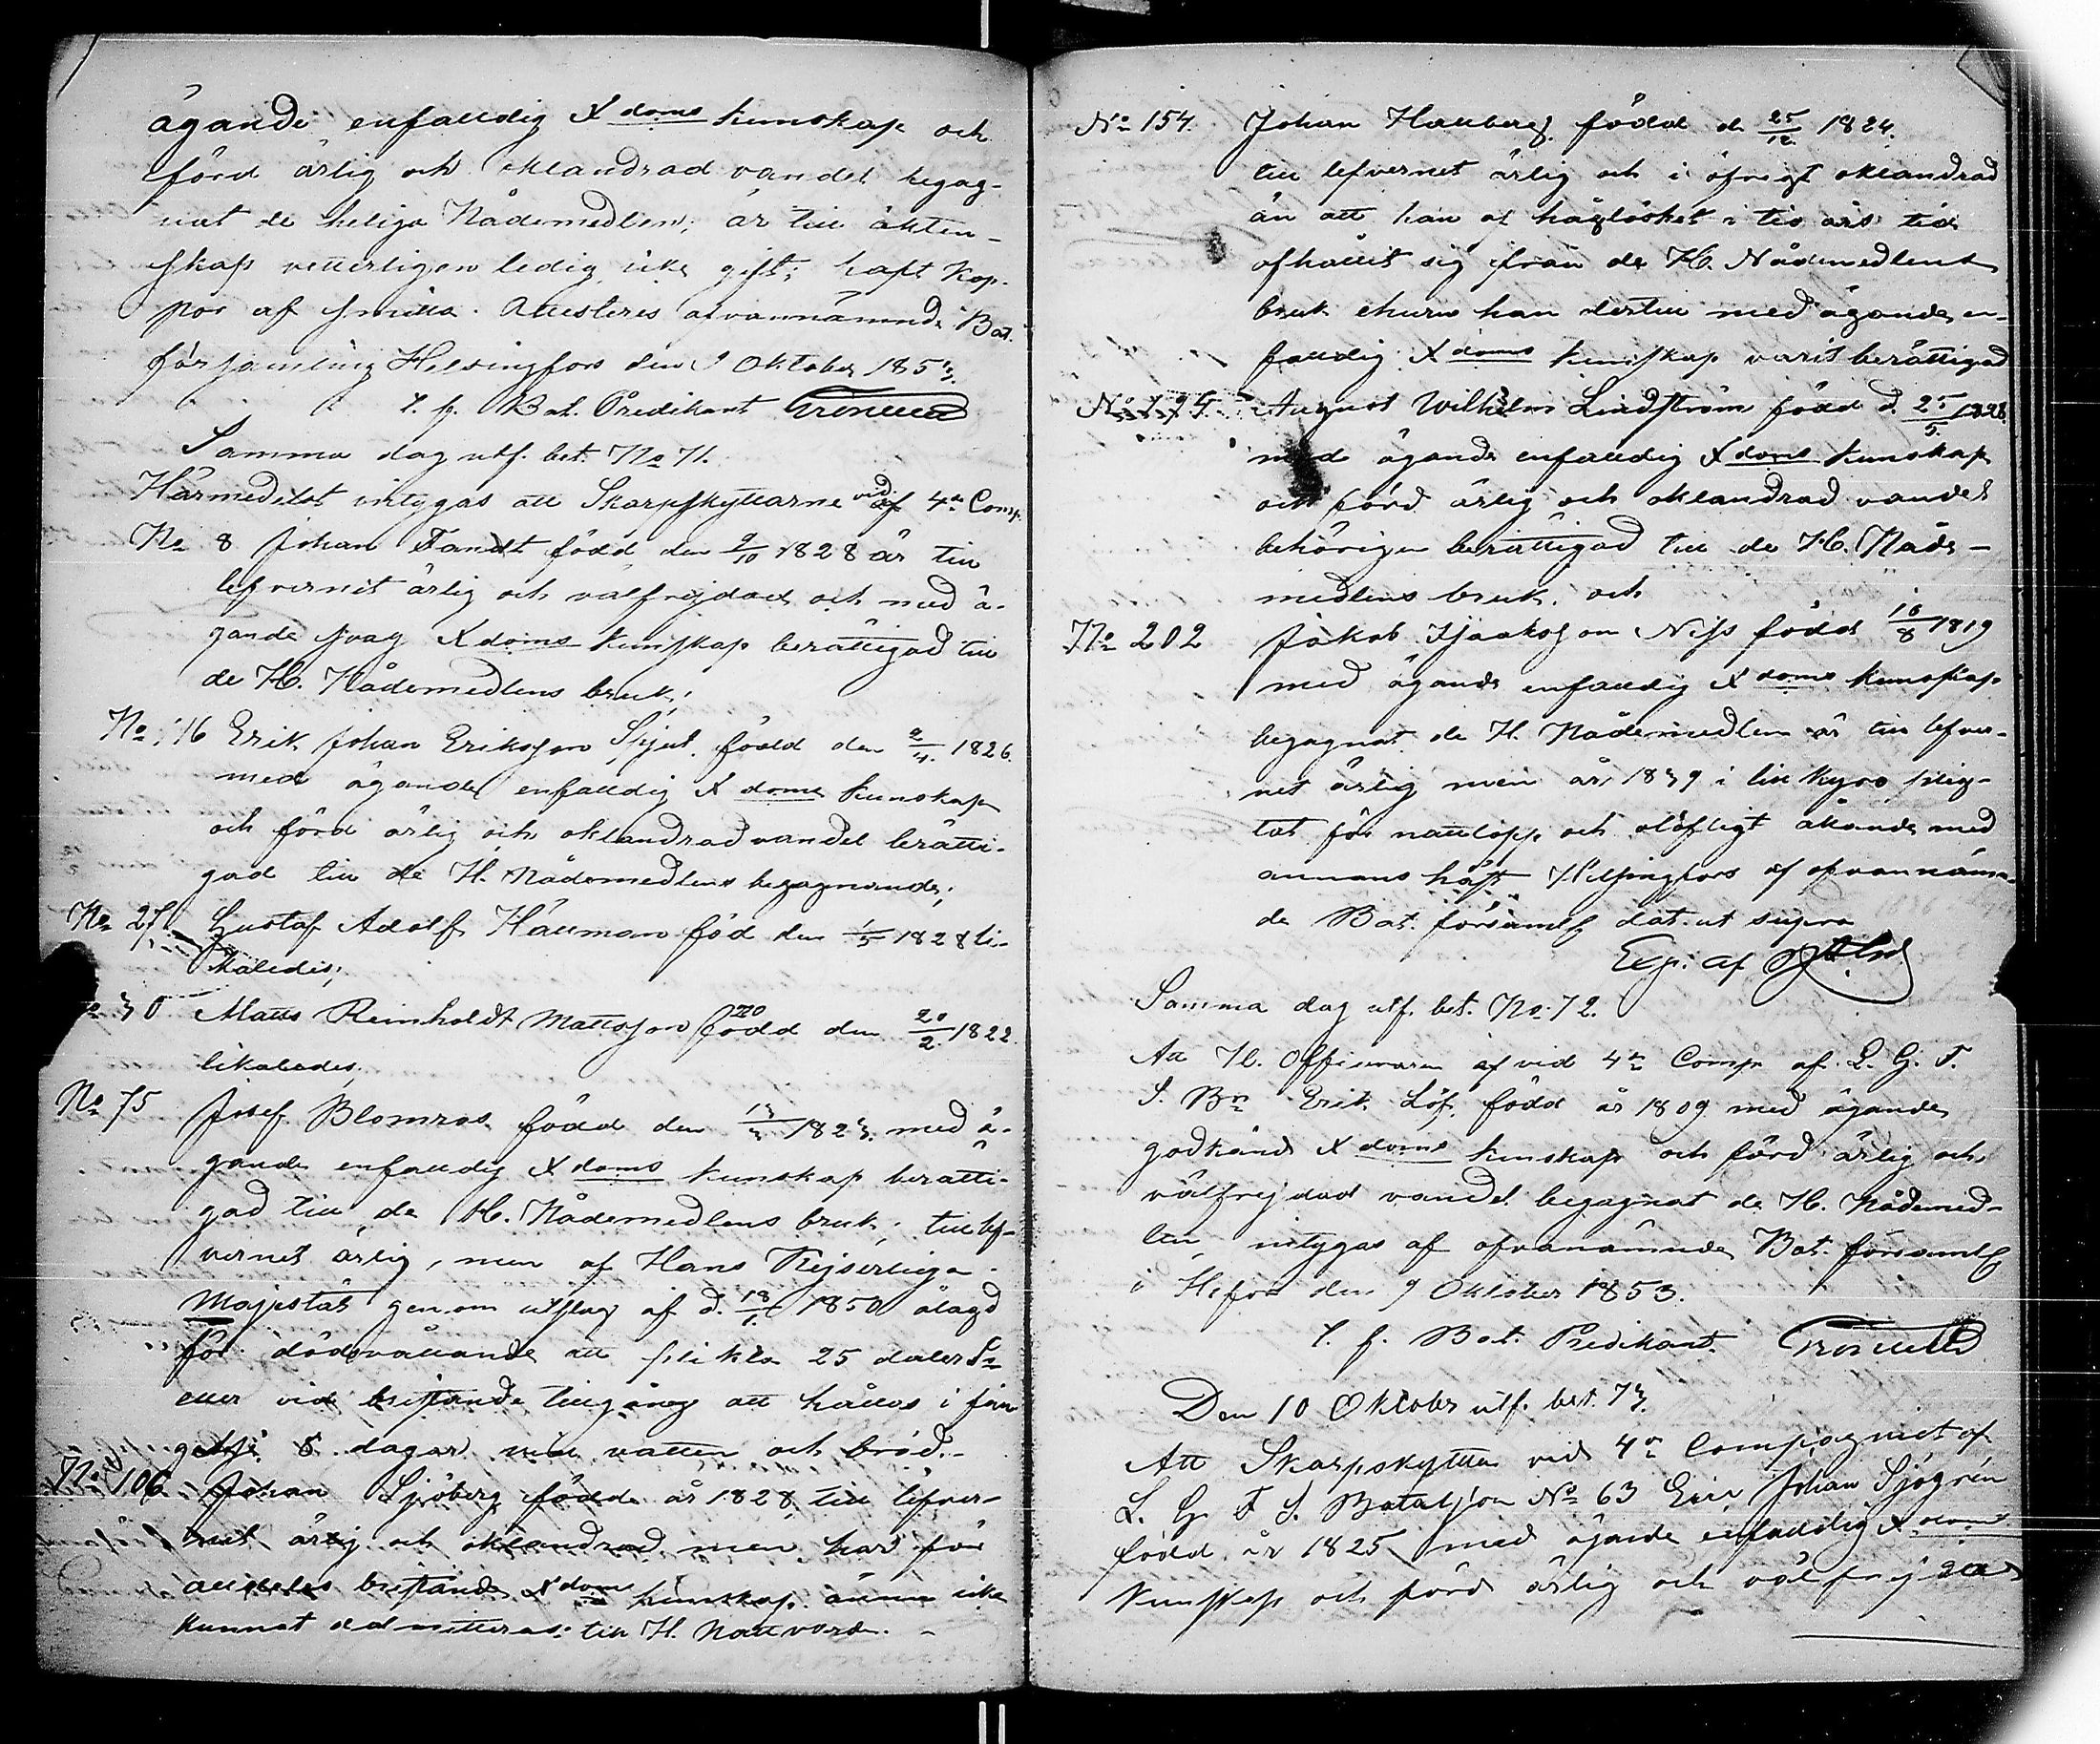 ägande enfaldig Xdoms kunskap och
förd ärlig och oklandrad vandel begag-
nat de heliga Nådemedlen; är till äkten-
skap vetterligen ledig icke gift; haft Kop-
por af smitta. Attesteras ofvannämnda Bat.
församling Helsingfors den 9 Oktober 1853.
t. f. Bat. Predikant
Samma dag utf. bet. No 71.
Härmedelst intygas att Skarpskyttarne vid af 4de Comp.
No 8 Johan Fandt född den 9/10 1828 är till
lefvernet ärlig och välfrejdad och med ä-
gande svag Xdoms kunskap berättigad till
de H. Nådemedlens bruk;
No 16 Erik Johan Eriksson Spjut född den 2/4 1826.
med ägande enfaldig Xdoms kunskap
och förd ärlig och oklandrad vandel berätti-
gad till de H. Nådemedlens begagnande;
No 27. Gustaf Adolf Hällman född den 1/5 1828 li-
kaledes;
No 30 Matts Reinholdt Mattsson född den 20/2 1822.
likaledes;
No 75 Josef Blomros född den 13/3 1823. med ä-
gande enfaldig Xdoms kunskap berätti-
gad till de H. Nådemedlens bruk; till lef-
vernet ärlig, men af Hans Kejserliga
Majestät genom utslag af d. 18/1 1850 ålagd
för dödsvållande att plikta 25 daler Sr
eller vid bristande tillgång att hållas i fän
gelse 8 dagar vid vatten och bröd.-
No 106 Johan Sjöberg född år 1828, till lefver-
net ärlig och oklandrad men har för
alldeles bristande Xdoms kunskap ännu icke
kunnat admitteras till H. Nattvard.-
No 154. Johan Hallberg född d 25/12 1824.
till lefvernet ärlig och i öfrigt oklandrad
än att han af håglöshet i tio års tid
afhållit sig ifrån de H. Nådemedlens
bruk ehuru han dertill med ägande en-
faldig Xdoms kunskap varit berättigad
No 179. August Wilhelm Lindström född d. 25/5 1828.
med ägande enfaldig Xdoms kunskap
och förd ärlig och oklandrad vandel
behörigen berättigad till de H. Nåde-
medlens bruk. och
No 202 Jakob Isaaksson Niss född 16/8 1819
med ägande enfaldig Xdoms kunskap
begagnat de H. Nådemedlen är till lefver-
net ärlig men år 1839 i Lill Kyro plig-
tat för nattlopp och olofligt åkande med
annans häst Helsingfors af ofvannämn-
de Bat. församlg dat. ut supra
Exp. af
Samma dag utf. bet. No 72.
Att U. Officeraren af vid 4de Comp. af L. G. F.
S. Bn Erik Löf född år 1809 med ägande
godkänd Xdoms kunskap och förd ärlig och
välfrejdad vandel begagnat de H. Nådemed-
len, intygas af ofvannämnde Bat. församlg
i H.fors den 9 Oktober 1853.
t. f. Bat. Predikant.
Den 10 Oktober utf. bet. 73.
Att Skarpskytten vid 4de Compagniet af
L. G. F. S. Bataljon No 63 Eric Johan Sjögrén
född år 1825 med ägande enfaldig Xdoms
kunskap och förd ärlig och välfrejdad